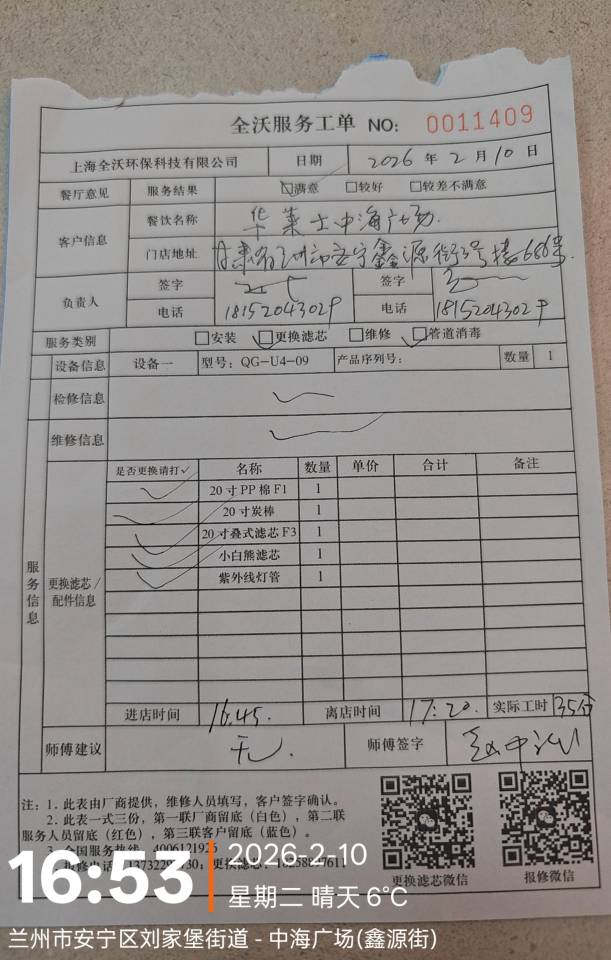 全沃服务工单 NO: 0011409
上海全沃环保科技有限公司 日期 2026年2月10日
餐厅意见 服务结果 ☑满意 □较好 □较差不满意
客户信息 餐饮名称 华莱士中海广场.
门店地址 甘肃省兰州市安宁鑫源街3号楼686号.
负责人 签字 签字
电话 18152043029 电话 18152043029
服务类别 □安装 ☑更换滤芯 □维修 ☑管道消毒
设备信息 设备一 型号: QG-U4-09 产品序列号: 数量 1
检修信息 ✓
维修信息 ✓
服务信息 更换滤芯/配件信息
是否更换请打✓ 名称 数量 单价 合计 备注
✓ 20寸PP棉F1 1
✓ 20寸炭棒 1
✓ 20寸叠式滤芯F3 1
✓ 小白熊滤芯 1
✓ 紫外线灯管 1
进店时间 16:45. 离店时间 17:20. 实际工时 35分
师傅建议 无. 师傅签字
注: 1. 此表由厂商提供，维修人员填写，客户签字确认。
2. 此表一式三份，第一联厂商留底（白色），第二联
服务人员留底（红色），第三联客户留底（蓝色）。
3. 全国服务热线: 4006121925
报修电话: 更换滤芯:
更换滤芯微信 报修微信
16:53
2026-2-10
星期二 晴天 6°C
兰州市安宁区刘家堡街道 - 中海广场(鑫源街)